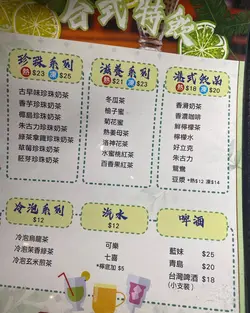 台式特飲
珍珠系列
熱 $23 凍 $25
古早味珍珠奶茶
香芋珍珠奶茶
椰島珍珠奶茶
朱古力珍珠奶茶
綠茶拿鐵珍珠奶茶
草莓珍珠奶茶
豆漿珍珠奶茶
滋養系列
熱 $21 凍 $23
冬瓜茶
柚子蜜
菊花蜜
熱薑母茶
洛神花茶
水蜜桃紅茶
百香果紅茶
港式飲品
熱 $18 凍 $20
香滑奶茶
香濃咖啡
鮮檸檬茶
檸檬水
好立克
朱古力
鴛鴦
豆漿 •熱$12 凍$14
冷泡系列
$12
冷泡烏龍茶
冷泡茉香綠茶
冷泡玄米煎茶
汽水
$12
可樂
七喜
*檸底加 $5
啤酒
藍妹 $25
青島 $20
台灣啤酒 $18
(小支裝)